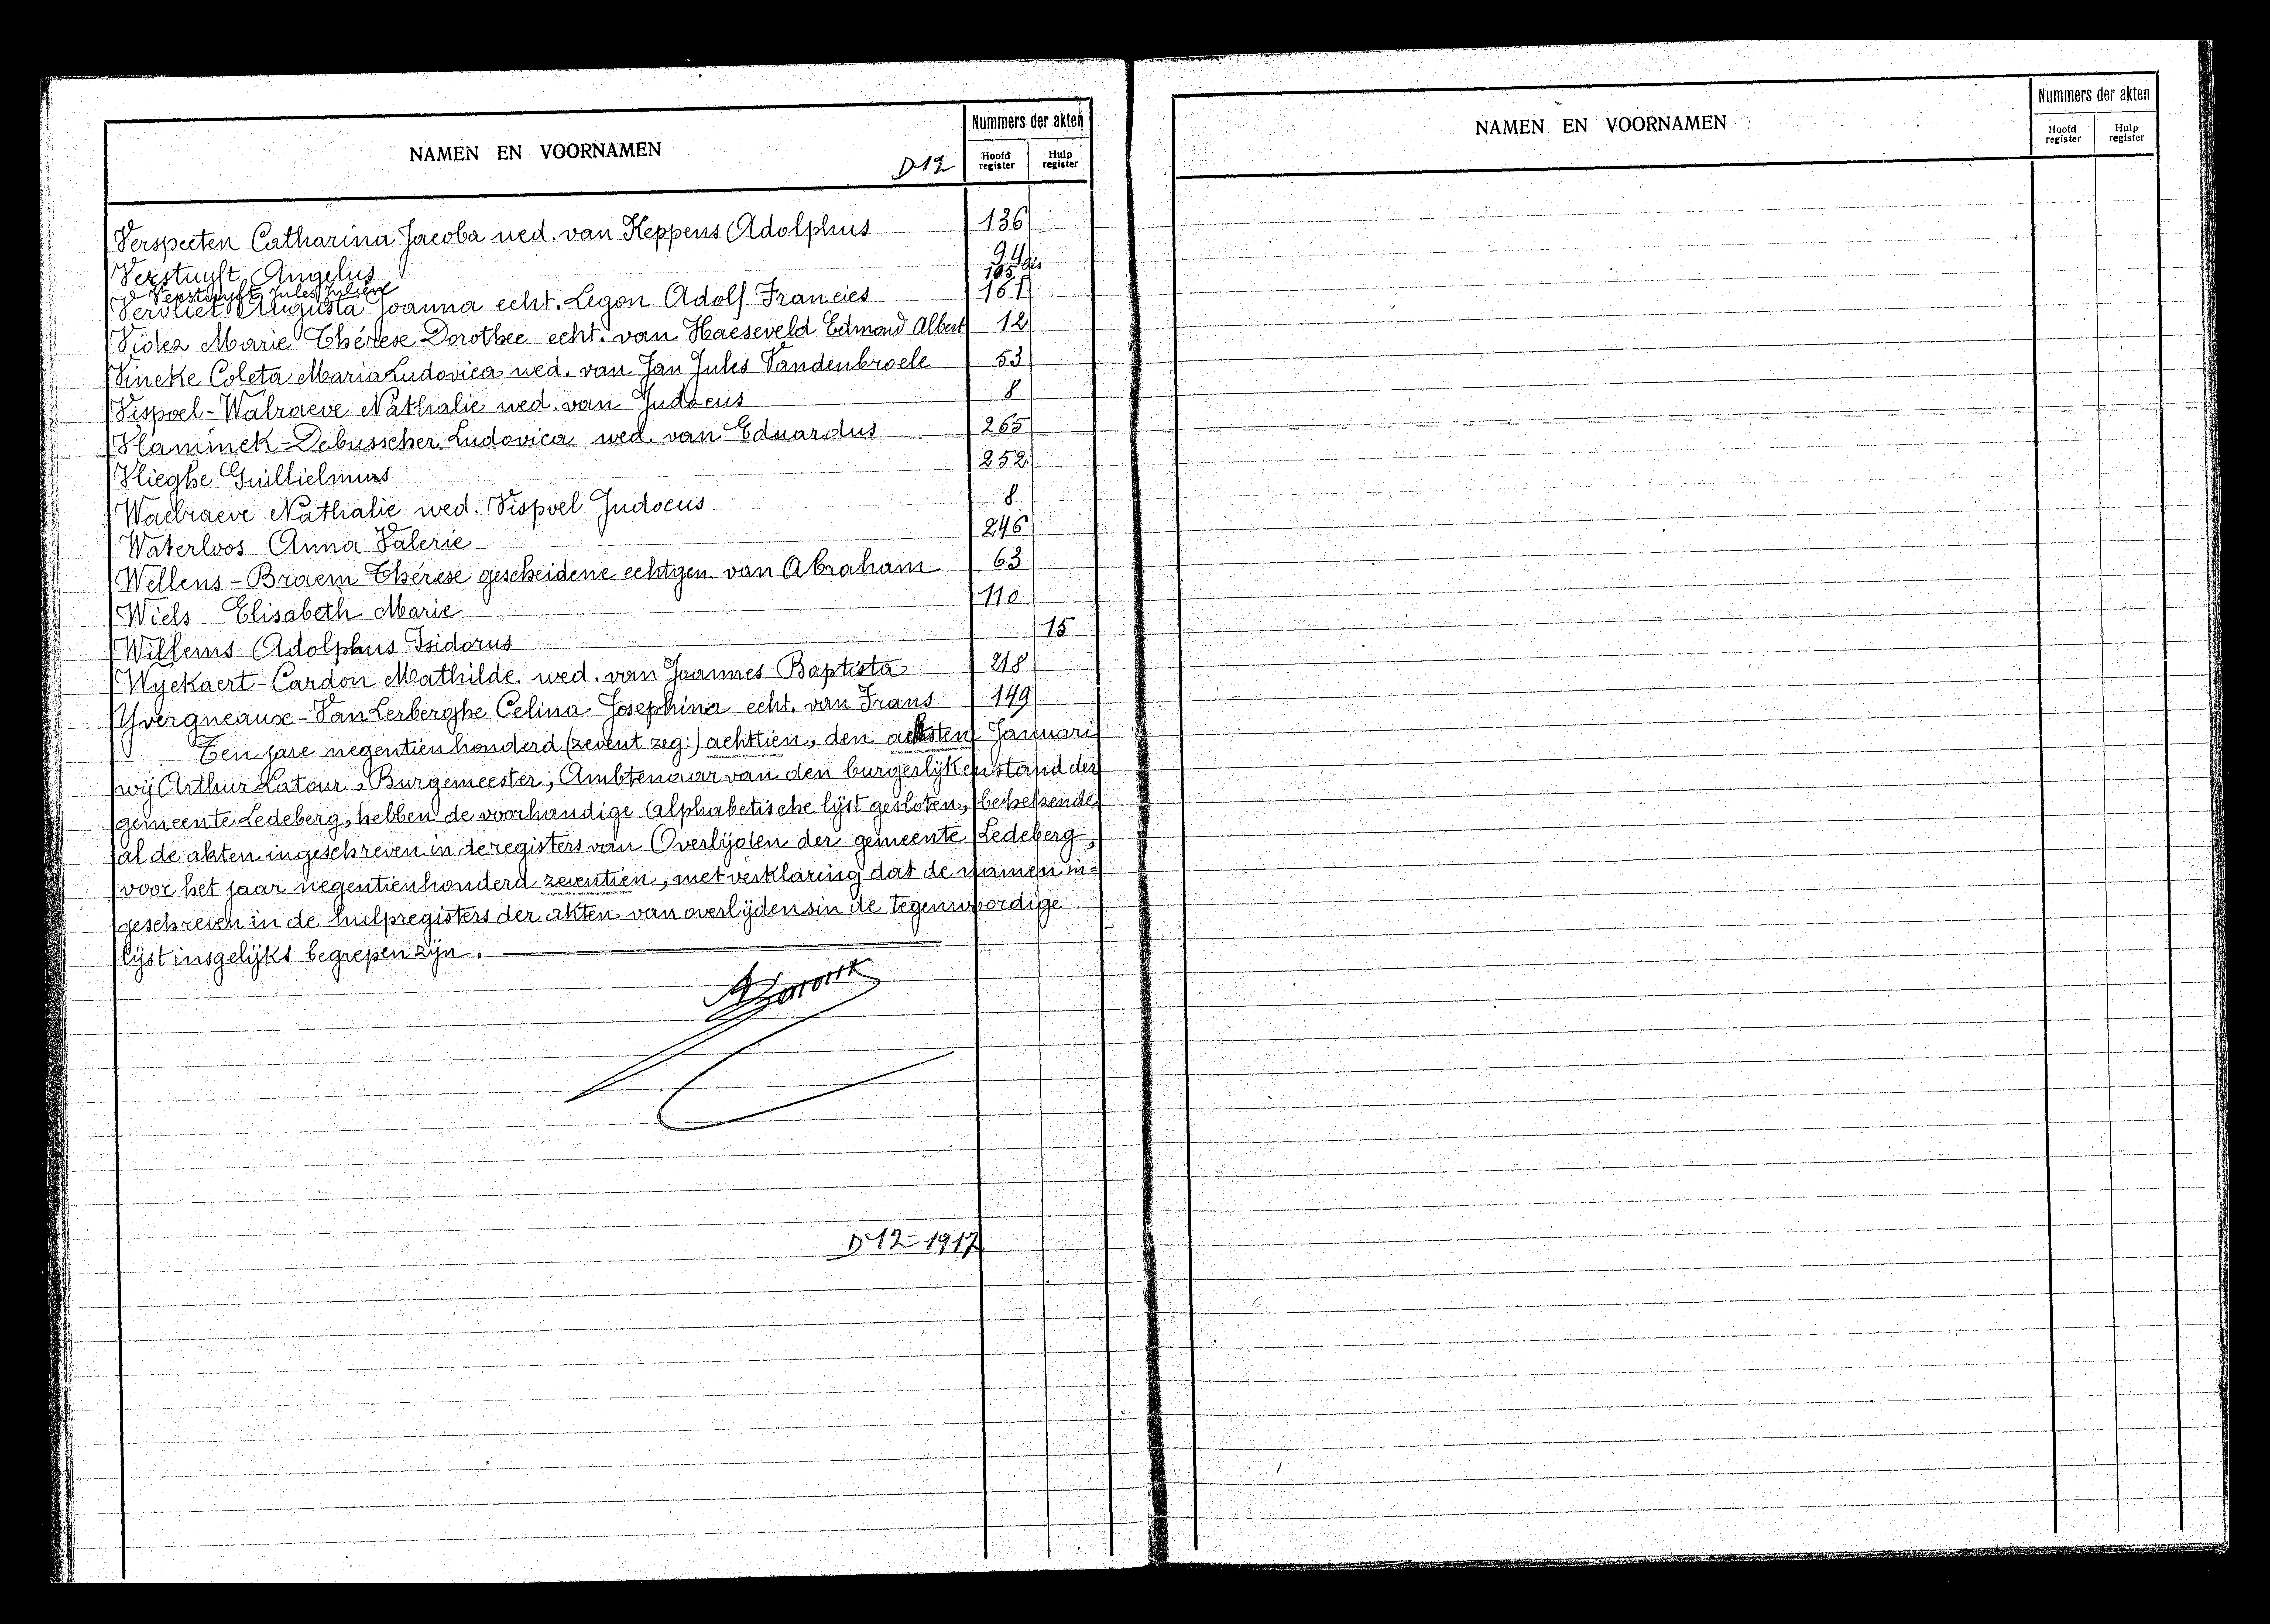 NAMEN EN VOORNAMEN
D12
Nummers der akten
Hoofd register
Hulp register
Verspeeten Catharina Jacoba wed. van Keppens Adolphus 136
Verstuyft Angelus 94
Verstuyft Jules Juliene 105 bis
Vervliet Augusta Joanna echt. Legon Adolf Francies 161
Videz Marie Thérese Dorothee echt. van Haeseveld Edmond Albert 12
Vincke Coleta Maria Ludovica wed. van Jan Jules Vandenbroele 53
Vispoel-Walraeve Nathalie wed. van Judocus 8
Vlaminck-Debusscher Ludovica wed. van Eduardus 265
Vlieghe Guillielmus 252
Waelraeve Nathalie wed. Vispoel Judocus 8
Waterloos Anna Valerie 246
Wellens-Braem Thérese gescheidene echtgen. van Abraham 63
Wiels Elisabeth Marie 110
Willems Adolphus Isidorus 15
Wyckaert-Cardon Mathilde wed. van Joannes Baptista 218
Yvergneaux-Van Lerberghe Celina Josephina echt. van Frans 149
Ten jare negentien honderd (zevent zeg:) achttien, den achsten Januari
wij Arthur Latour, Burgemeester, Ambtenaar van den burgerlijken stand der
gemeente Ledeberg, hebben de voorhandige alphabetische lijst gesloten, behelzende
al de akten ingeschreven in de registers van Overlijden der gemeente Ledeberg,
voor het jaar negentienhonderd zeventien, met verklaring dat de namen in=
geschreven in de hulpregisters der akten van overlijdens in de tegenwoordige
lijst insgelijks begrepen zijn.
D12-1917
NAMEN EN VOORNAMEN
Nummers der akten
Hoofd register
Hulp register